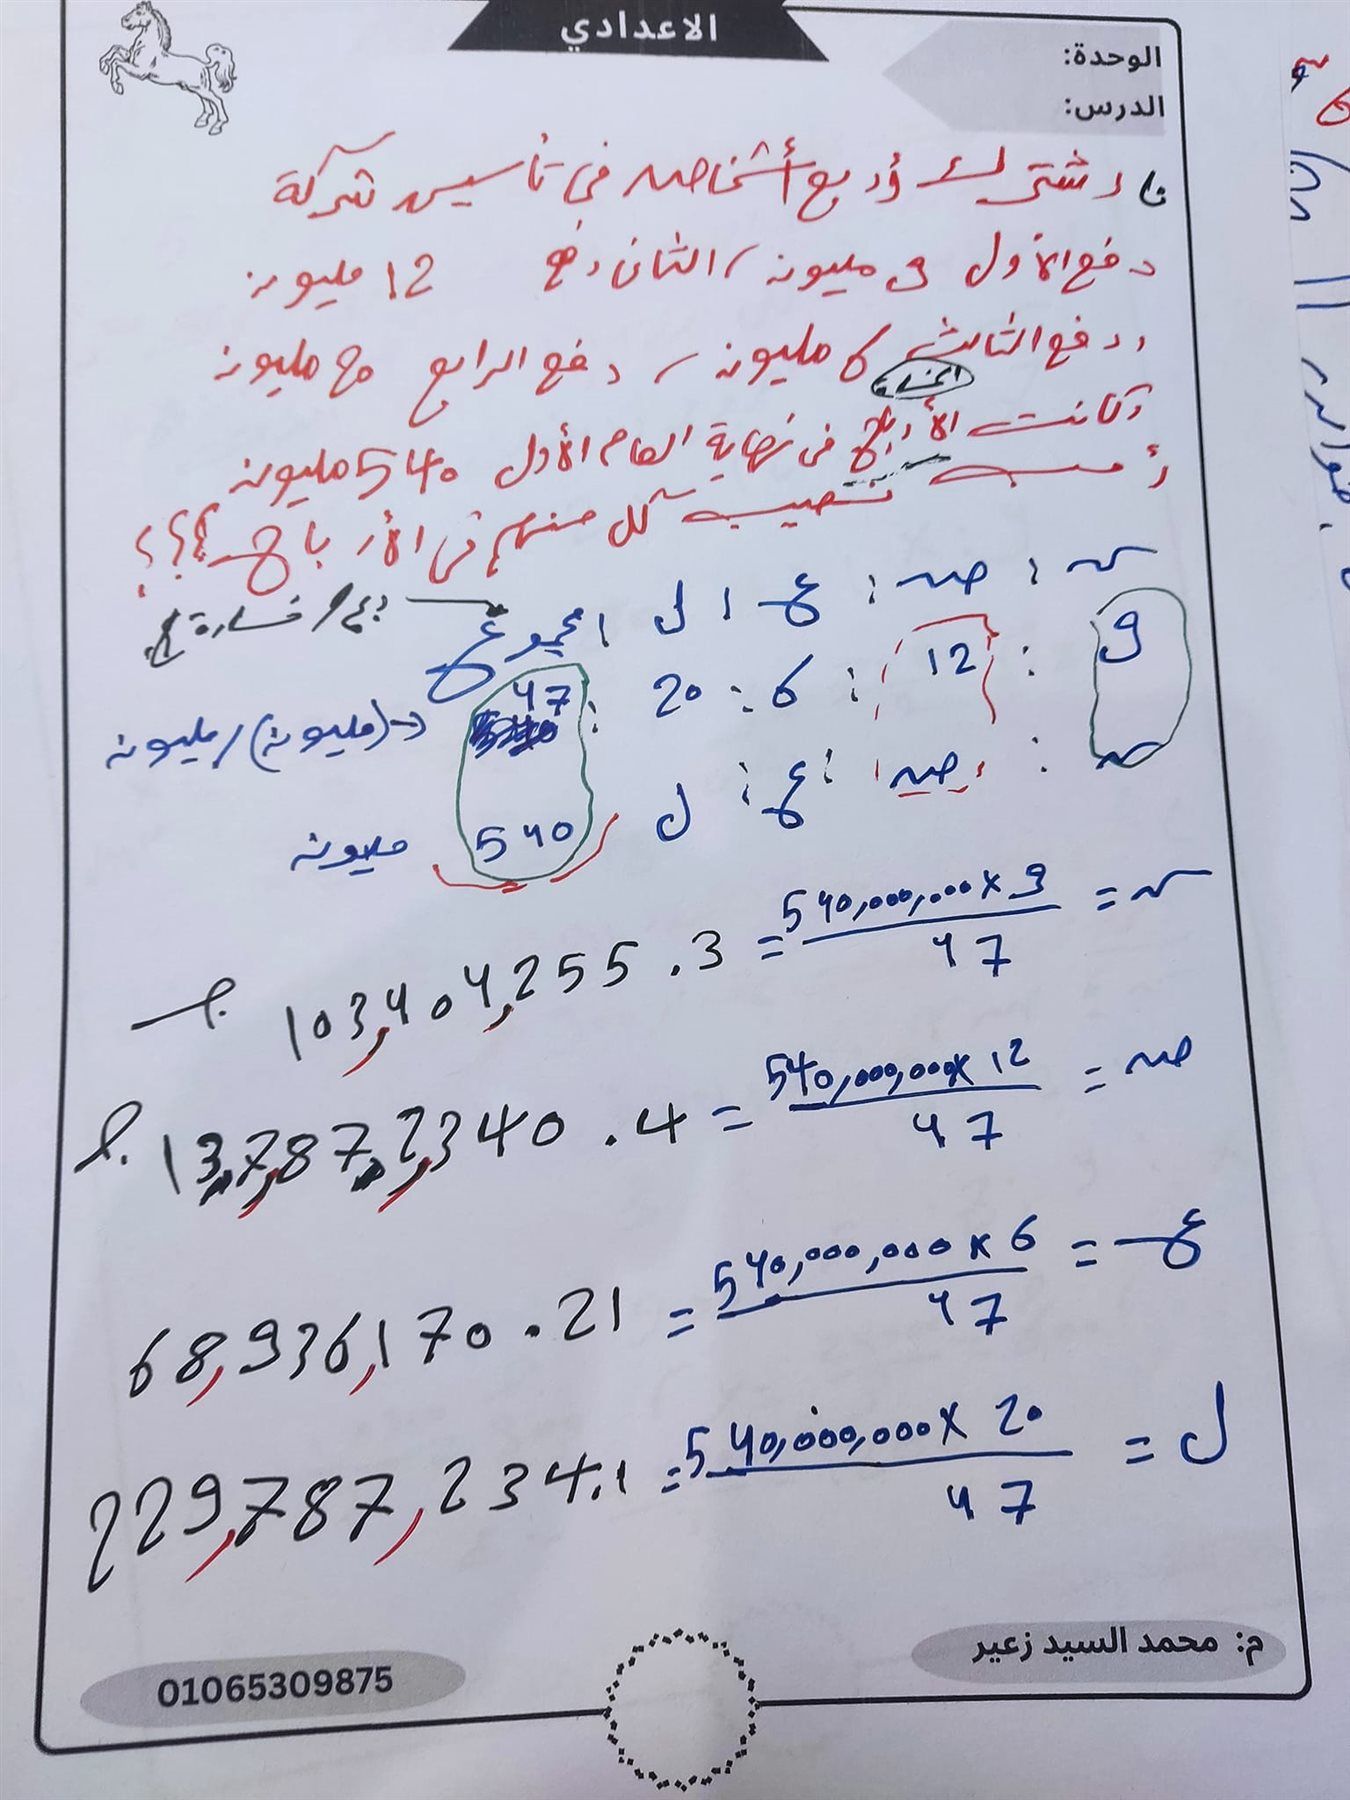 الاعدادي
الوحدة:
الدرس:
اشترك أربع أشخاص في تأسيس شركة
دفع الأول 9 مليون / الثاني دفع 12 مليون
ودفع الثالث 6 مليون / دفع الرابع 20 مليون
الخسارة
وكانت الأرباح في نهاية العام الأول 540 مليون
أحسب نصيب كل منهم في الأرباح ؟؟؟
س : ص : ع : ل : مجموع ← ربح / خسارة
9 : 12 : 6 : 20 : 47 د (مليون) / مليون
س : ص : ع : ل 540 مليون
س = 540,000,000 x 9 / 47 = 103,404,255.3 ج.
ص = 540,000,000 x 12 / 47 = 13,7,87,2,340.4 ج.
ع = 540,000,000 x 6 / 47 = 68,936,170.21
ل = 540,000,000 x 20 / 47 = 229,787,234.1
م: محمد السيد زعير
01065309875